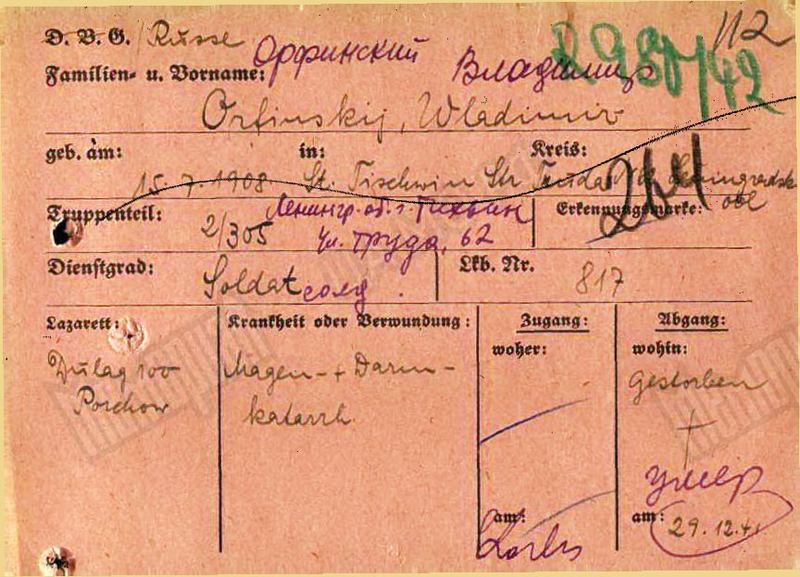 D.B.G. / Russe 112
Орфинский Владимир
Familien- u. Vorname:
Orfinskij, Wladimir
geb. am: in: Kreis:
15.7.1908. St. Tischwin Str Leningradsk
obl
264
Truppenteil: Ленингр. об. г. Тихвин Erkennungsmarke:
2/305 ул. Труда, 62
Dienstgrad: Lkb. Nr.
Soldat солд. 817
Lazarett: Krankheit oder Verwundung: Zugang: Abgang:
woher: wohin:
Dulag 100 Magen- + Darm- gestorben
Porchow katarrh
умер
am: am: 29.12.41